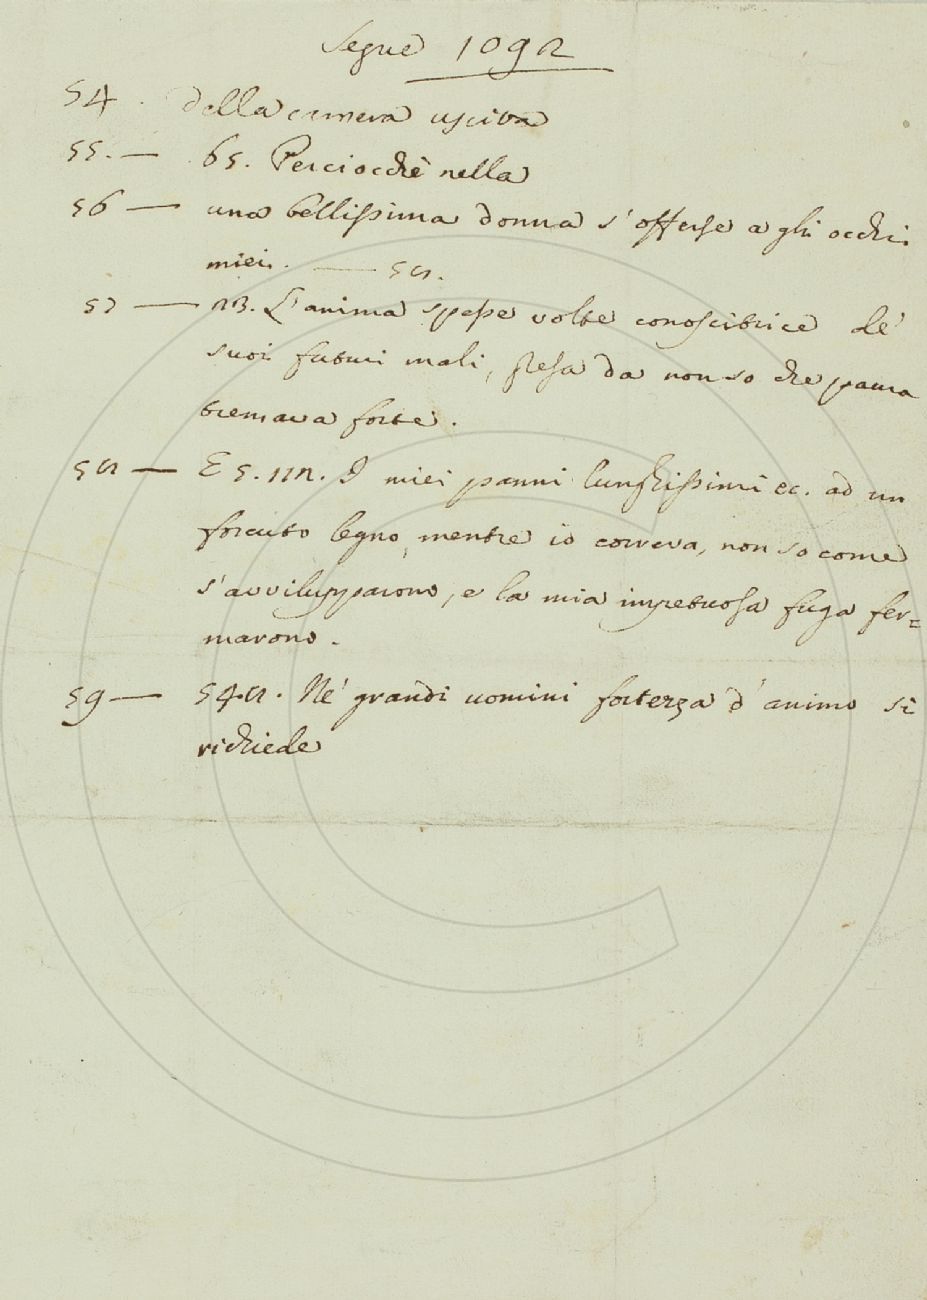 Segue 1092
54. della camera usciva
55. — 65. Perciocchè nella
56 — una bellissima donna s'offerse a gli occhi
miei. — 58.
57 — 23. L'anima spesse volte conoscitrice de'
suoi futuri mali, presa da non so che paura
tremava forte.
58 — E 5. 112. I miei panni lunghissimi ec. ad un
forcuto legno, mentre io correva, non so come
s'avvilupparono, e la mia impetuosa fuga fer=
marono.
59 — 548. Ne' grandi uomini fortezza d'animo si
richiede